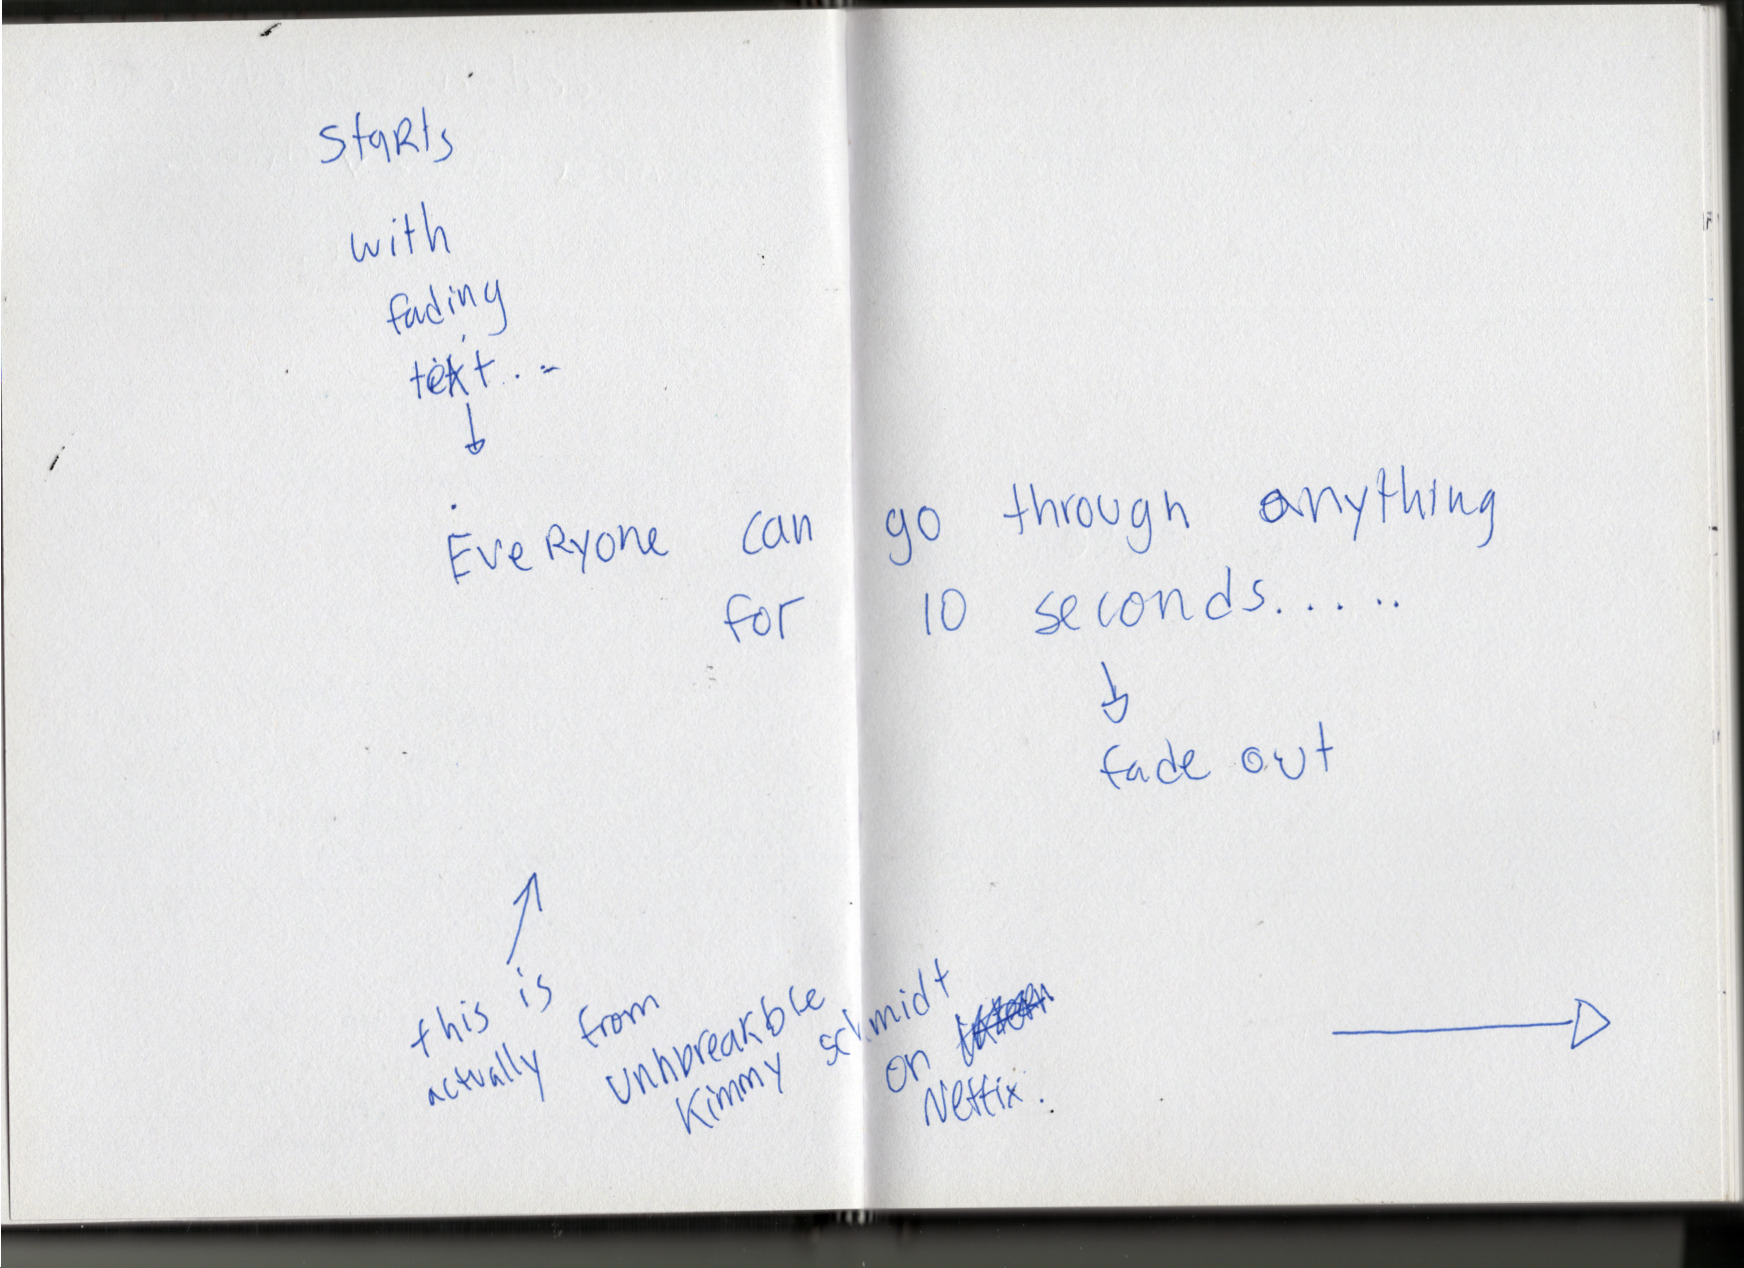 Starts
with
fading
text...
Everyone can go through anything
for 10 seconds......
fade out
this is
actually from
Unhbreakble
Kimmy schmidt
on
Netflix.